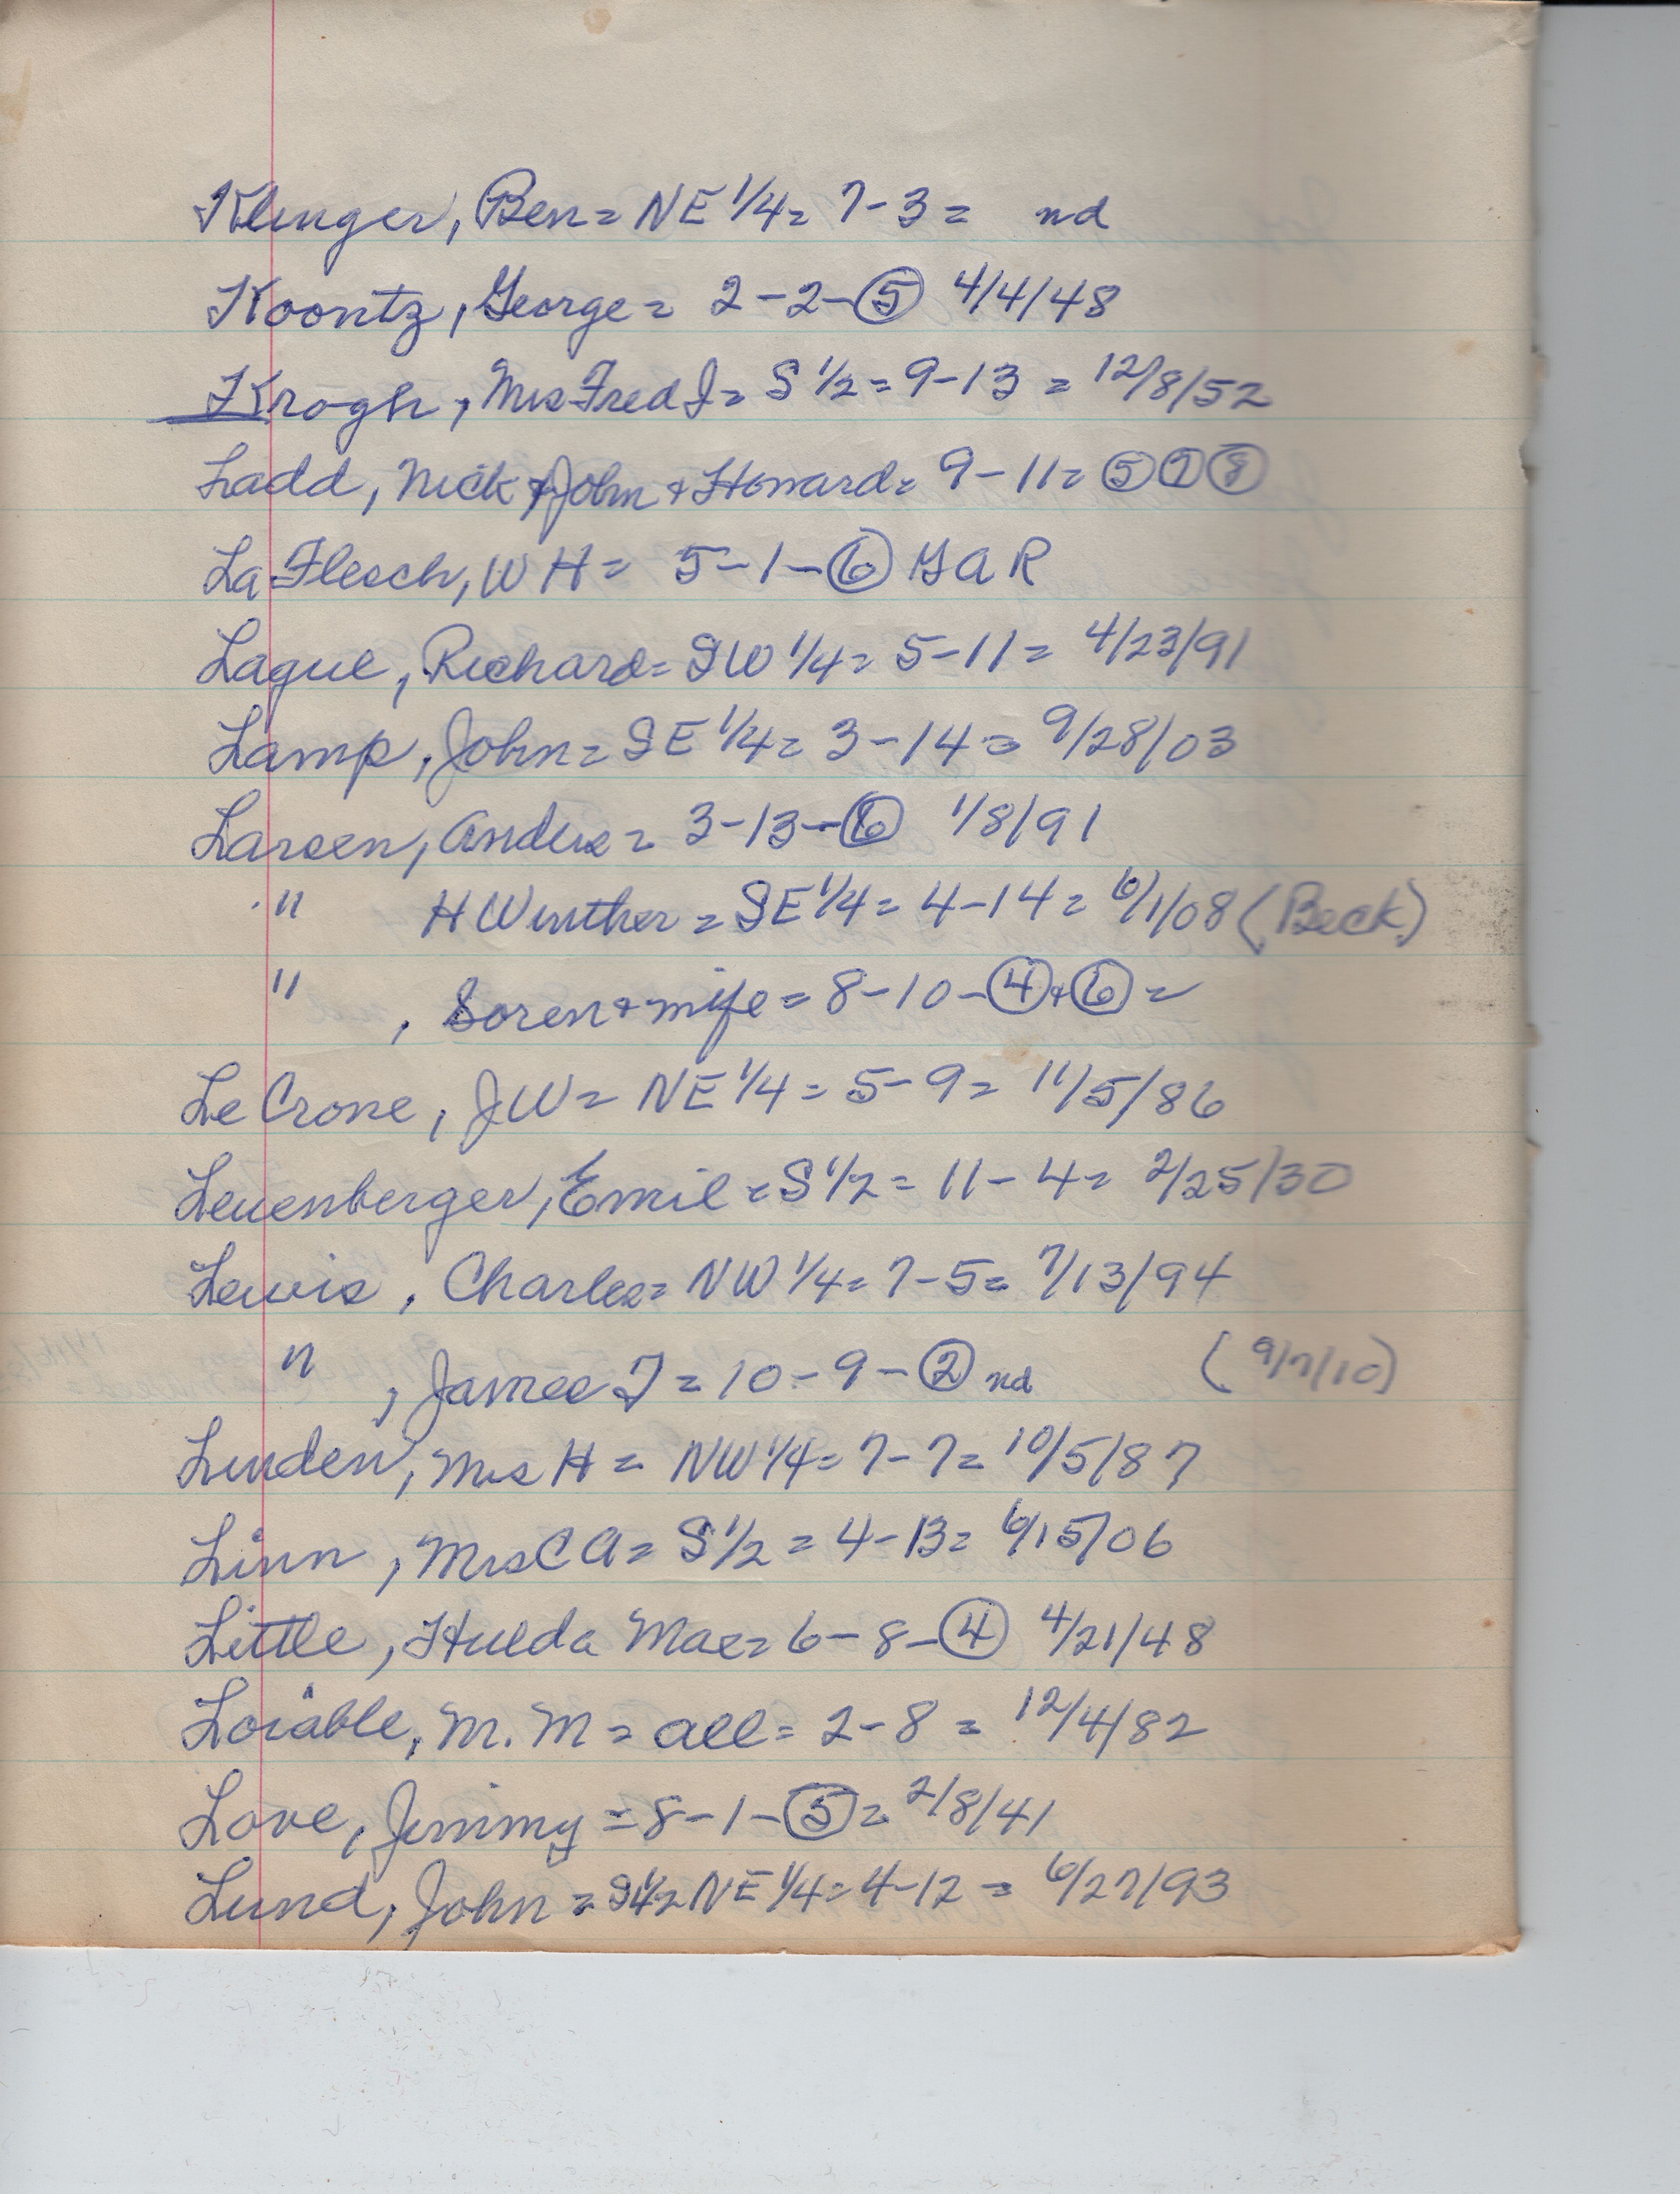 Klinger, Ben = NE 1/4 = 7-3 = nd
Koontz, George = 2-2-5 4/4/48
Krogh, Mrs Fred J = S 1/2 = 9-13 = 12/8/52
Ladd, Nick & John & Howard = 9-11 = 5 7 8
LaFlesch, W H = 5-1-6 G A R
Lague, Richard = SW 1/4 = 5-11 = 4/23/91
Lamp, John = SE 1/4 = 3-14 = 9/28/03
Larsen, Anders = 3-13-6 1/8/91
" H Winther = SE 1/4 = 4-14 = 6/1/08 (Beck)
", Soren & wife = 8-10-4 & 6 =
LeCrone, J W = NE 1/4 = 5-9 = 11/5/86
Leuenberger, Emil = S 1/2 = 11-4 = 2/25/30
Lewis, Charles = NW 1/4 = 7-5 = 7/13/94
", James T = 10-9-2 nd (9/7/10)
Linden, Mrs H = NW 1/4 = 7-7 = 10/5/87
Linn, Mrs C A = S 1/2 = 4-13 = 6/15/06
Little, Hulda Mae = 6-8-4 4/21/48
Loiable, M. M = all = 2-8 = 12/4/82
Love, Jimmy = 8-1-5 = 2/8/41
Lund, John = S 1/2 NE 1/4 = 4-12 = 6/27/93